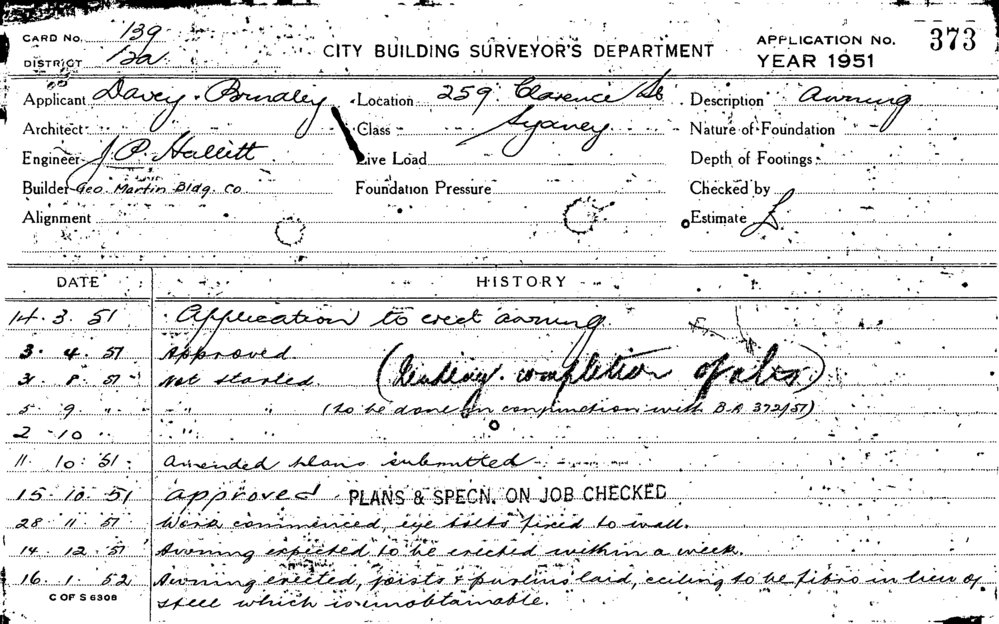 CARD No. 139
DISTRICT 12a
CITY BUILDING SURVEYOR'S DEPARTMENT
APPLICATION No. 373
YEAR 1951
Applicant Davey Brindley
Location 259 Clarence St
Sydney
Description Awning
Architect
Class
Nature of Foundation
Engineer J. P. Hallitt
Live Load
Depth of Footings
Builder Geo. Martin Bldg. Co
Foundation Pressure
Checked by
Alignment
Estimate £
DATE HISTORY
14. 3. 51 Application to erect awning
3. 4. 51 Approved
31 8 51 Not started (Pending completion of alts.)
5 9 " " " (to be done in conjunction with B.A 372/51)
2 10 " " "
11. 10. 51. Amended plans submitted
15. 10. 51 approved PLANS & SPECN. ON JOB CHECKED
28 11 51 Work commenced, eye bolts fixed to wall.
14 12 51 Awning expected to be erected within a week.
16. 1. 52 Awning erected, joists & purlins laid, ceiling to be fibro in lieu of
steel which is unobtainable.
C OF S 6308